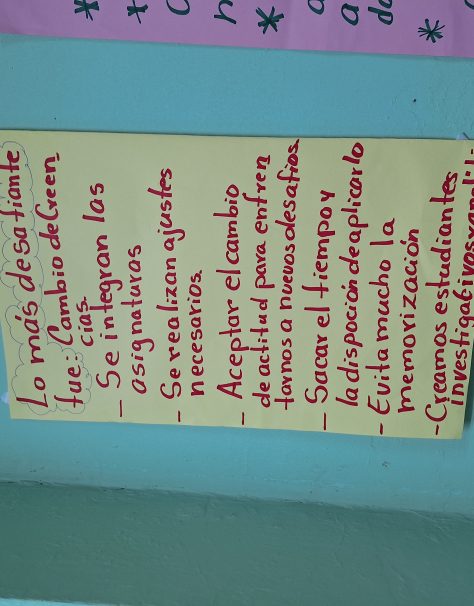 Lo más desafiante
fue: Cambio de Creen
cias.
- Se integran las
asignaturas
- Se realizan ajustes
necesarios.
- Aceptar el cambio
de actitud para enfren
tarnos a nuevos desafios.
- Sacar el tiempo y
la dispocion de aplicarlo
- Evita mucho la
memorización
- Creamos estudiantes
investigativos,